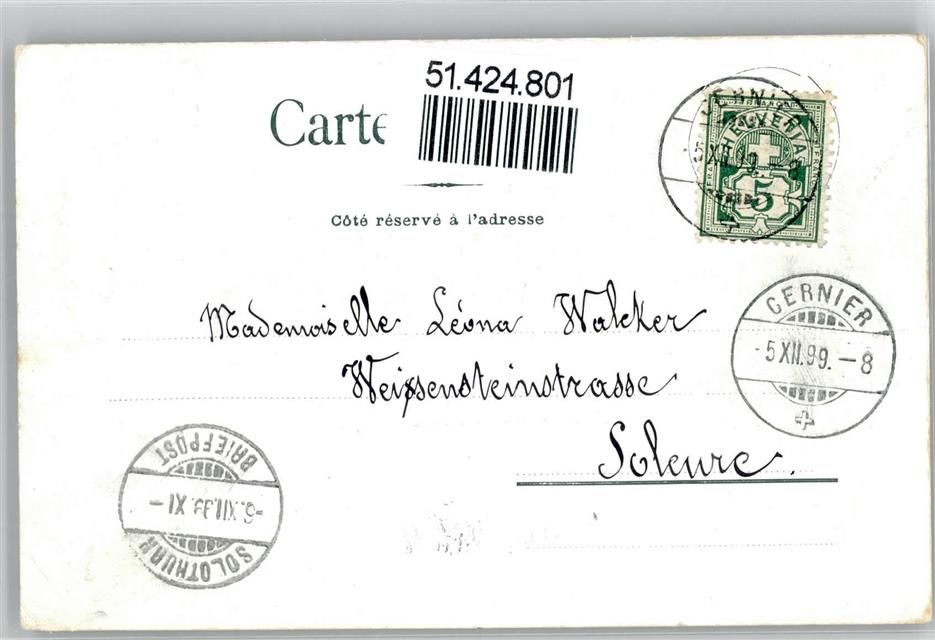 51.424.801
Carte
Côté réservé à l'adresse
HELVETIA
5
CERNIER
-5 XII.99.-8
Mademoiselle Léona Walker
Weissensteinstrasse
Soleure.
SOLOTHURN
-6.XII.99.XI-
BRIEFPOST